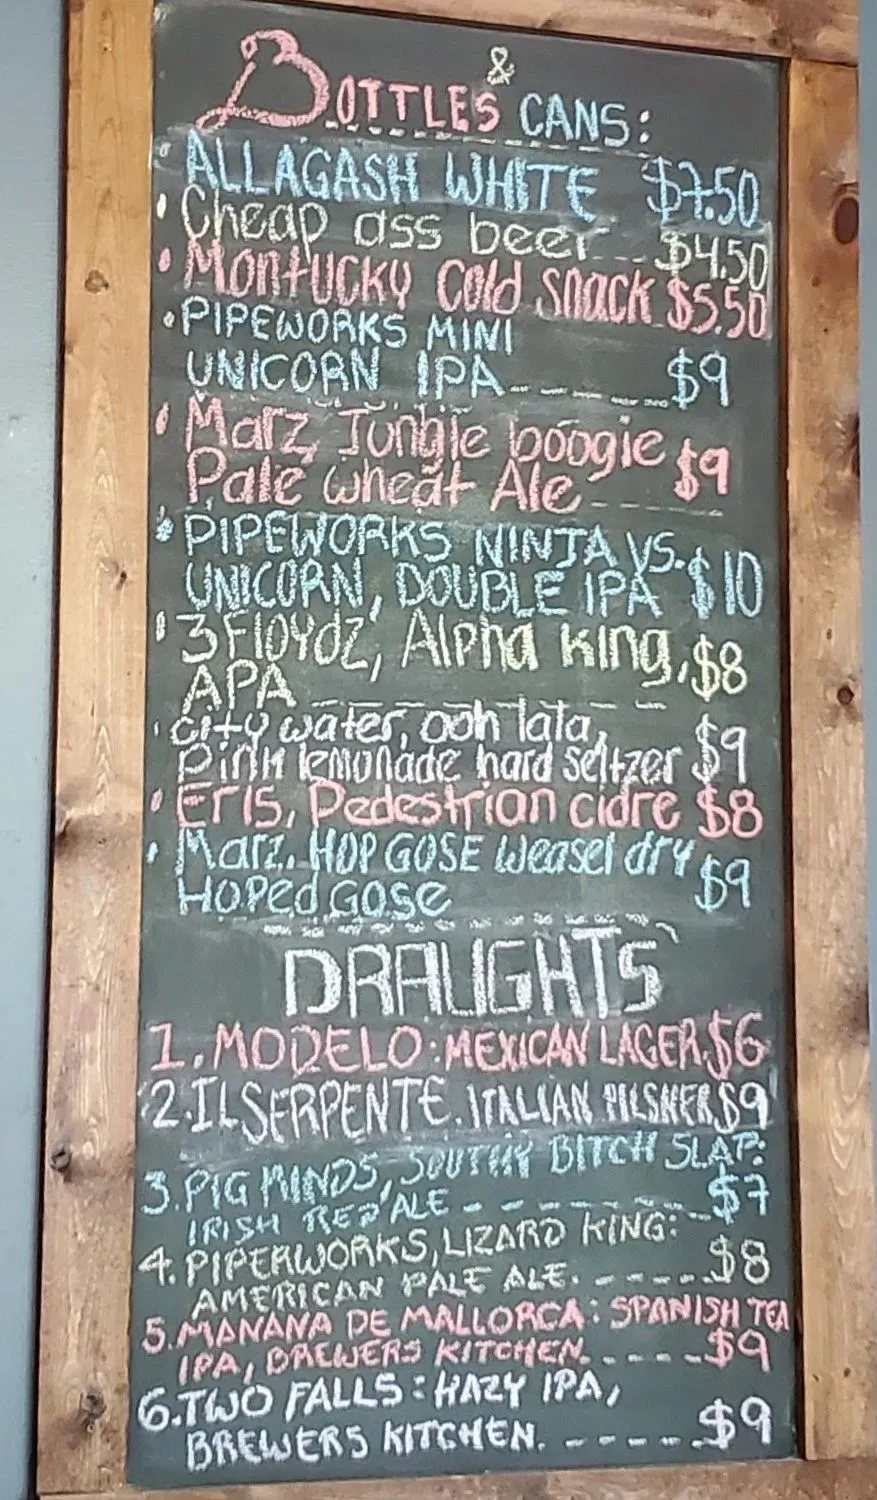 BOTTLES & CANS:
• ALLAGASH WHITE $7.50
• Cheap ass beer --- $4.50
• Montucky Cold Snack $5.50
• PIPEWORKS MINI
UNICORN IPA ------ $9
• Marz, Jungle boogie
Pale wheat Ale ----- $9
• PIPEWORKS NINJA VS.
UNICORN, DOUBLE IPA $10
• 3 Floydz, Alpha King, $8
APA ---------
• City water, ooh lala,
Pink lemonade hard seltzer $9
• Eris, Pedestrian cidre $8
• Marz. HOP GOSE Weasel dry
Hoped Gose $9
DRAUGHTS
1. MODELO: MEXICAN LAGER $6
2. IL SERPENTE. ITALIAN PILSNER $9
3. PIG MINDS, SOUTHY BITCH SLAP:
IRISH RED ALE -------- $7
4. PIPERWORKS, LIZARD KING:
AMERICAN PALE ALE. ----- $8
5. MANANA DE MALLORCA: SPANISH TEA
IPA, BREWERS KITCHEN. ----- $9
6. TWO FALLS: HAZY IPA,
BREWERS KITCHEN. ----- $9